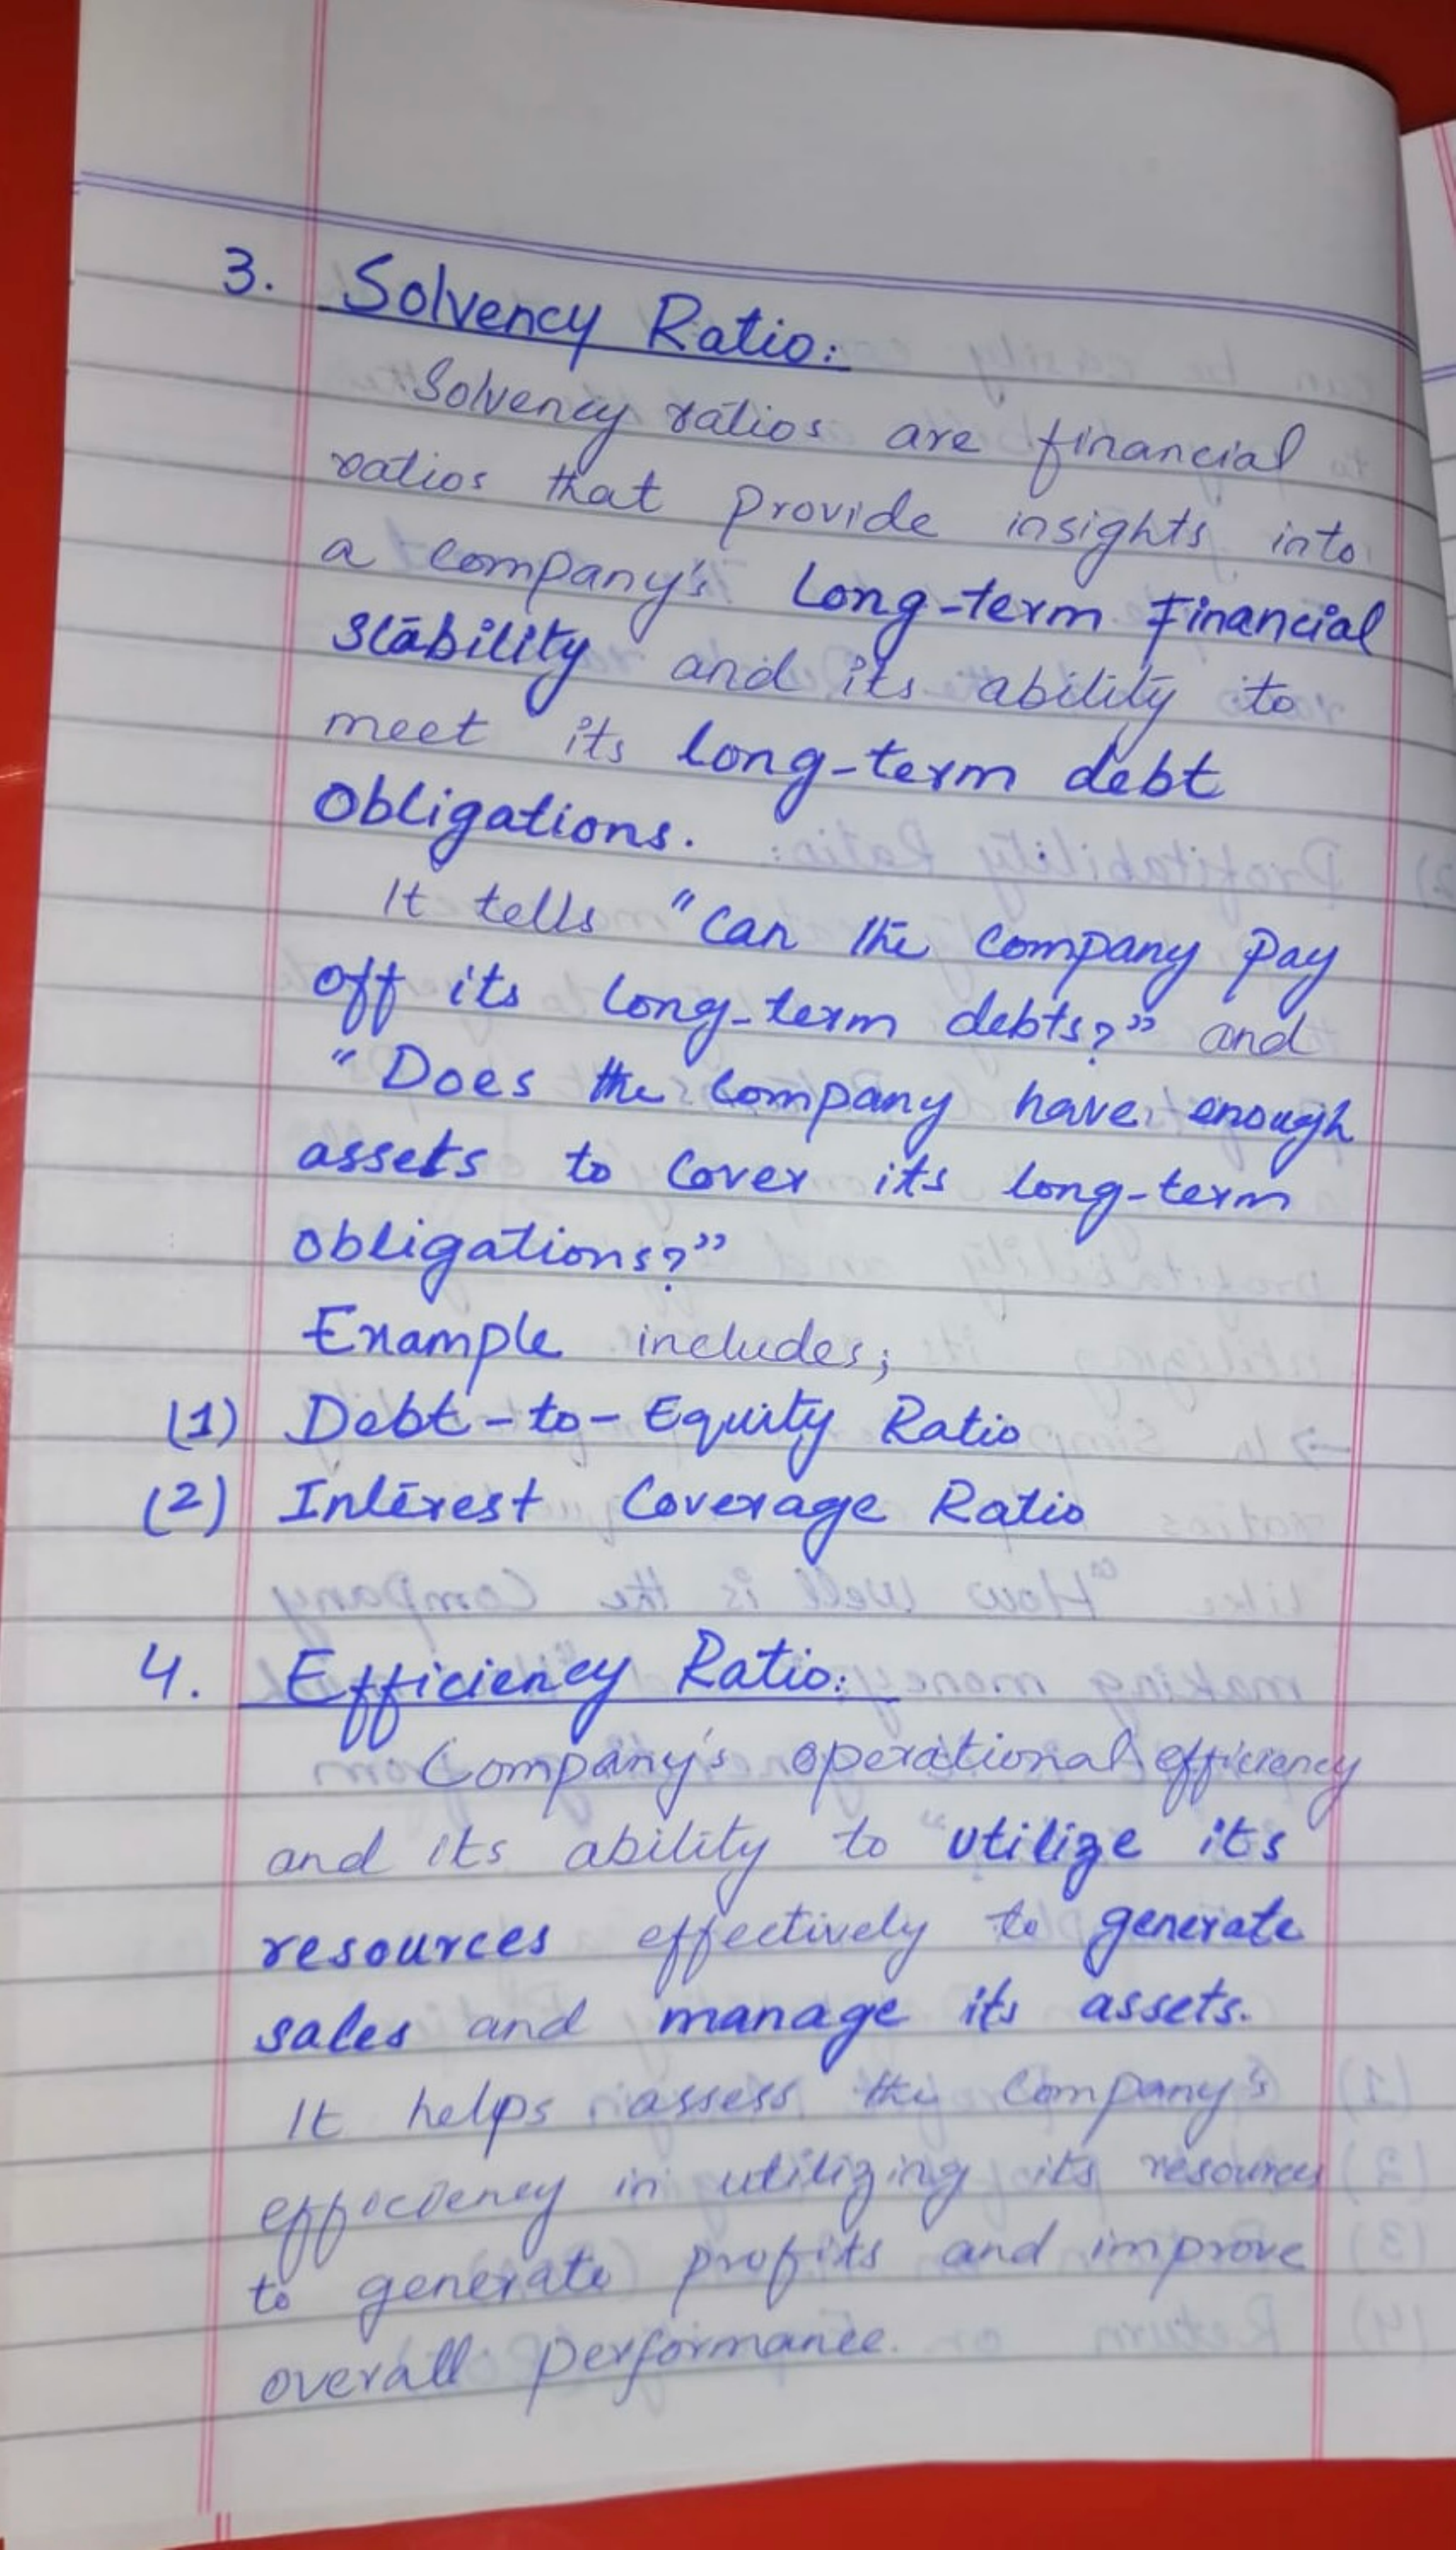 3. Solvency Ratio:
Solvency ratios are financial
ratios that provide insights into
a company's Long-term Financial
Stability and its ability to
meet its long-term debt
Obligations.
It tells "Can the Company Pay
off its long-term debts?" and
"Does the Company have enough
assets to Cover its long-term
obligations?"
Example includes;
(1) Debt-to-Equity Ratio
(2) Interest Coverage Ratio
4. Efficiency Ratio:
Company's operational efficiency
and its ability to utilize its
resources effectively to generate
sales and manage its assets.
It helps assess the Company's
efficiency in utilizing its resources
to generate profits and improve
overall performance.